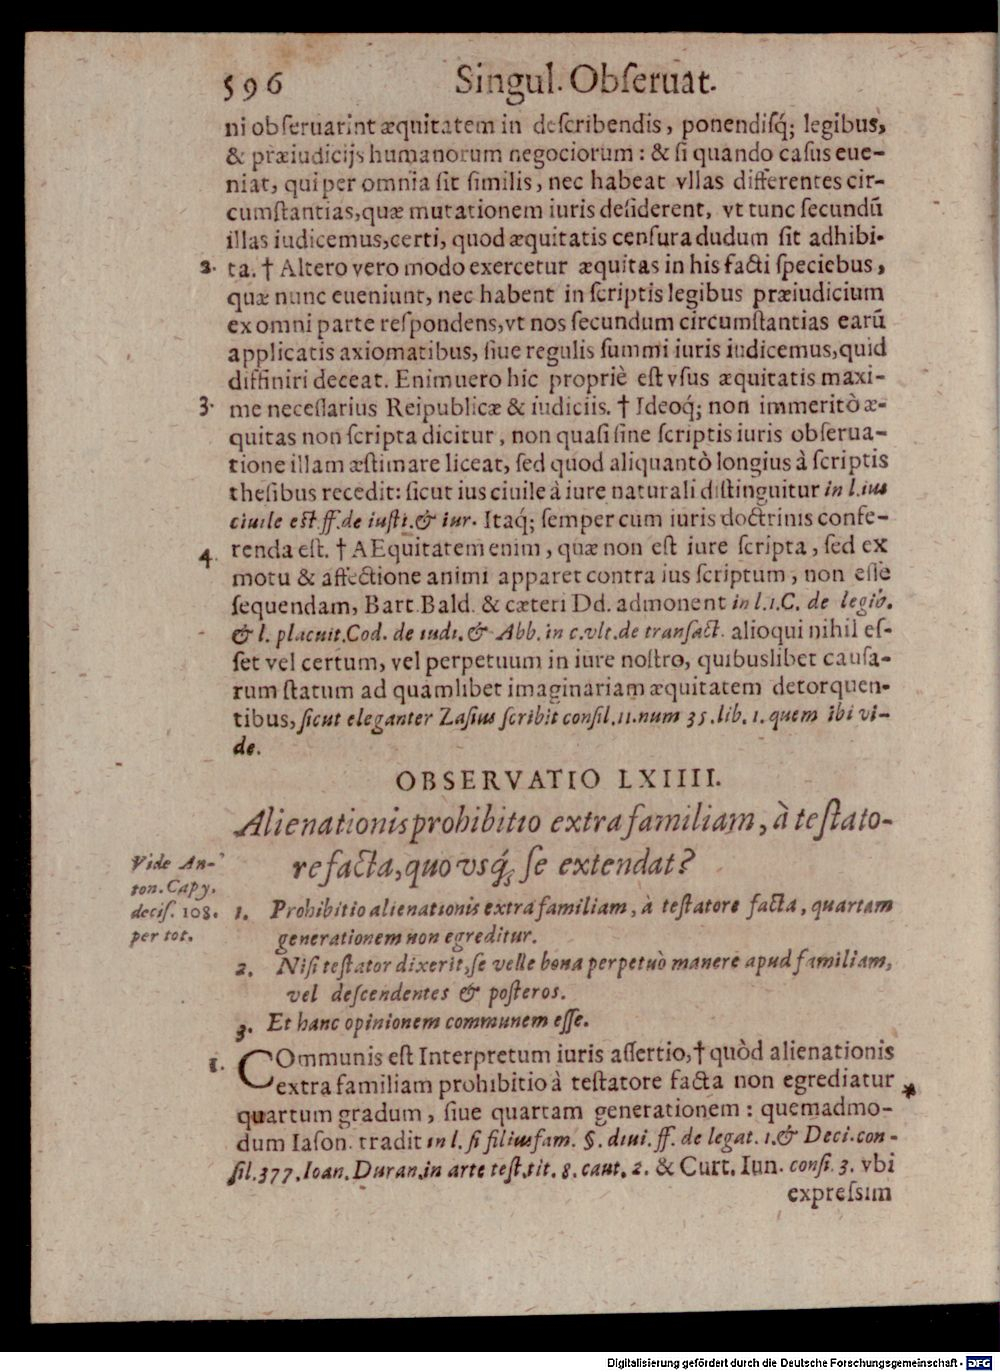 596 Singul. Obſeruat.
ni obſeruarint æquitatem in deſcribendis, ponendiſq́; legibus,
& præiudicijs humanorum negociorum : & ſi quando caſus eue-
niat, qui per omnia ſit ſimilis, nec habeat vllas differentes cir-
cumſtantias, quæ mutationem iuris deſiderent, vt tunc ſecundũ
illas iudicemus, certi, quod æquitatis cenſura dudum ſit adhibi-
2. ta. † Altero vero modo exercetur æquitas in his facti ſpeciebus,
quæ nunc eueniunt, nec habent in ſcriptis legibus præiudicium
ex omni parte reſpondens, vt nos ſecundum circumſtantias earũ
applicatis axiomatibus, ſiue regulis ſummi iuris iudicemus, quid
diffiniri deceat. Enimuero hic propriè eſt vſus æquitatis maxi-
3. me neceſſarius Reipublicæ & iudiciis. † Ideoq́; non immeritò æ-
quitas non ſcripta dicitur, non quaſi ſine ſcriptis iuris obſerua-
tione illam æſtimare liceat, ſed quod aliquantò longius à ſcriptis
theſibus recedit: ſicut ius ciuile à iure naturali diſtinguitur in l. ius
ciuile eſt. ff. de iuſti. & iur. Itaq́; ſemper cum iuris doctrinis confe-
4. renda eſt. † AEquitatem enim, quæ non eſt iure ſcripta, ſed ex
motu & affectione animi apparet contra ius ſcriptum, non eſſe
ſequendam, Bart. Bald. & cæteri Dd. admonent in l. 1. C. de legib.
& l. placuit. Cod. de iudi. & Abb. in c. vlt. de tranſact. alioqui nihil eſ-
ſet vel certum, vel perpetuum in iure noſtro, quibuslibet cauſa-
rum ſtatum ad quamlibet imaginariam æquitatem detorquen-
tibus, ſicut eleganter Zaſius ſcribit conſil. 11. num 35. lib. 1. quem ibi vi-
de.
OBSERVATIO LXIIII.
Alienationis prohibitio extra familiam, à teſtato-
re facta, quo vsq́; ſe extendat?
Vide An-
ton. Capy,
deciſ. 108.
per tot.
1. Prohibitio alienationis extra familiam, à teſtatore facta, quartam
generationem non egreditur.
2. Niſi teſtator dixerit, ſe velle bona perpetuò manere apud familiam,
vel deſcendentes & poſteros.
3. Et hanc opinionem communem eſſe.
1. COmmunis eſt Interpretum iuris aſſertio, † quòd alienationis
extra familiam prohibitio à teſtatore facta non egrediatur *
quartum gradum, ſiue quartam generationem : quemadmo-
dum Iaſon. tradit in l. ſi filiusfam. §. diui. ff. de legat. 1. & Deci. con-
ſil. 377. Ioan. Duran. in arte teſt. tit. 8. caut. 2. & Curt. Iun. conſi. 3. vbi
expreſsim
Digitalisierung gefördert durch die Deutsche Forschungsgemeinschaft - DFG